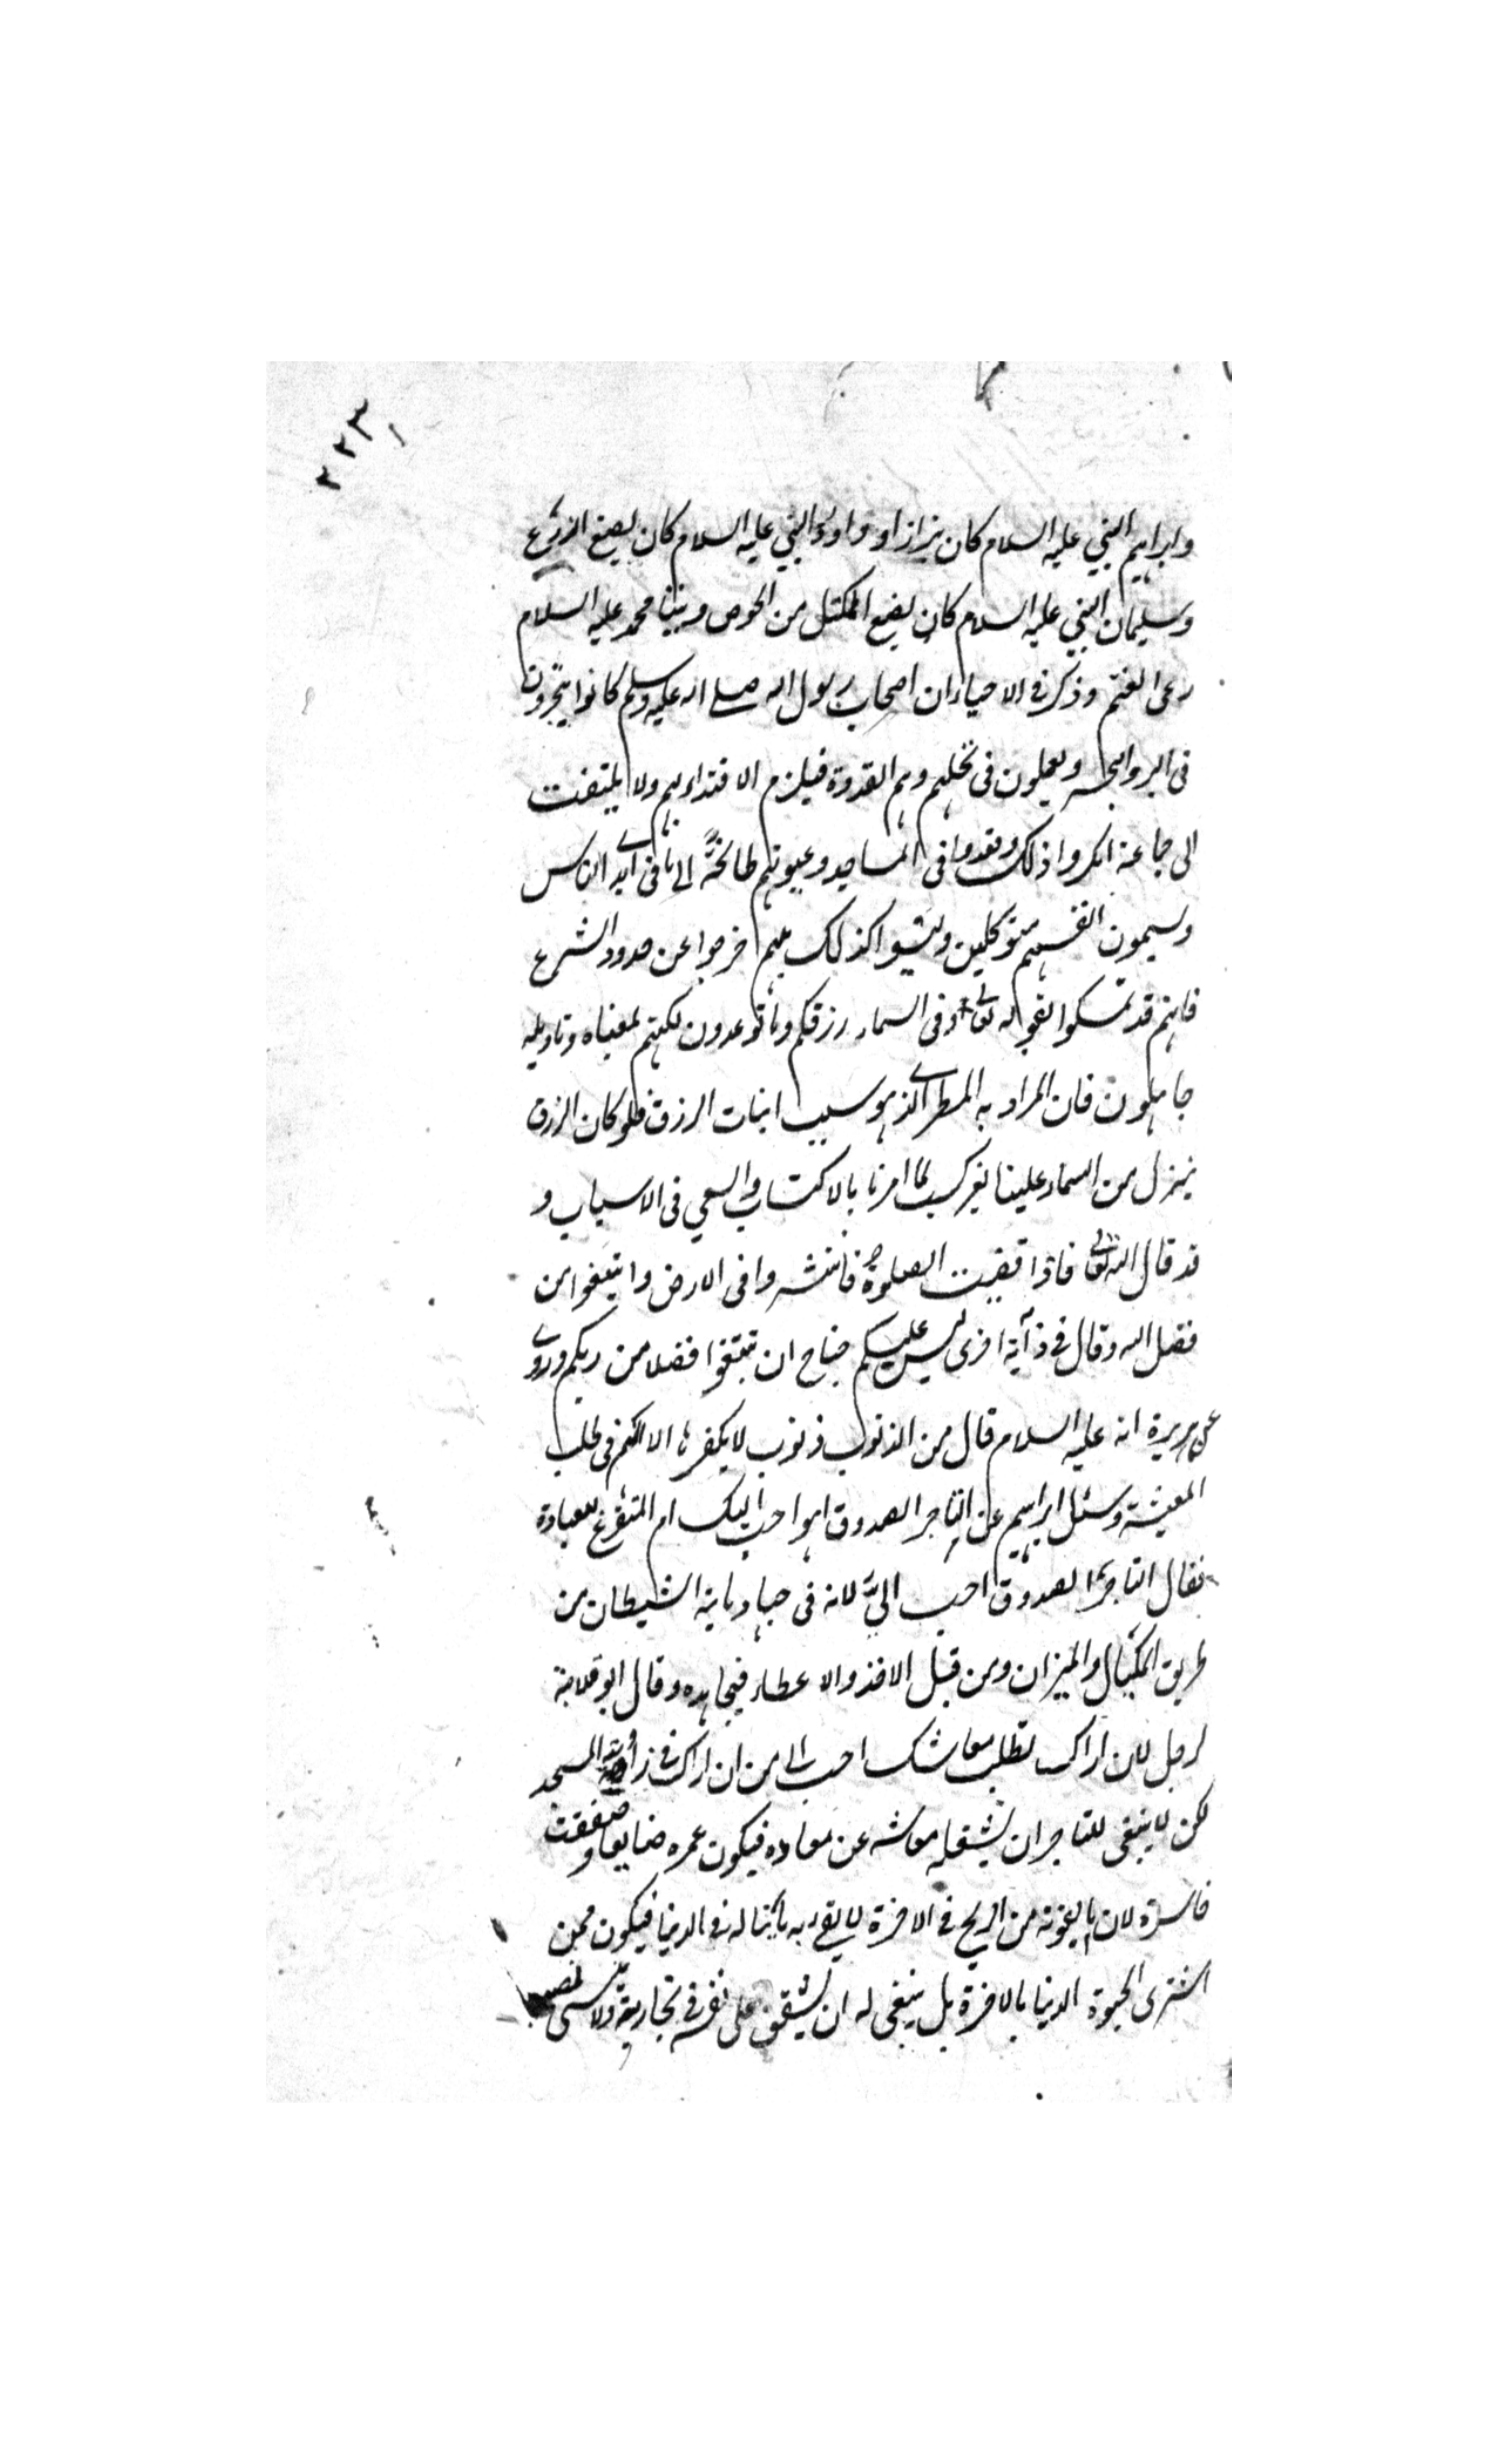 ٢٢٣
وابراهيم النبي عليه السلام كان بزازا وداود النبي عليه السلام كان يصنع الدرع
وسليمان النبي عليه السلام كان يصنع المكتل من الخوص ونبينا محمد عليه السلام
رعى الغنم وذكر في الاحياء ان اصحاب رسول الله صلى الله عليه وسلم كانوا يتجرون
في البر والبحر ويعملون في نخلهم وهم القدوة فيلزم الاقتداء بهم ولا يلتفت
الى جماعة انكروا ذلك وقعدوا في المساجد وعيونهم طامحة الى ما في ايدي الناس
ويسمون انفسهم متوكلين وليسوا كذلك بل هم خرجوا عن حدود الشرع
فانهم قد تمسكوا بقوله تعالى وفي السماء رزقكم وما توعدون لكنهم بمعناه وتاويله
جاهلون فان المراد به المطر الذي هو سبب انبات الرزق فلو كان الرزق
ينزل من السماء علينا بغير كسب لما امرنا بالاكتساب والسعي في الاسباب و
قد قال الله تعالى فاذا قضيت الصلوة فانتشروا في الارض وابتغوا من
فضل الله وقال في آية اخرى ليس عليكم جناح ان تبتغوا فضلا من ربكم وروي
عن هريرة انه عليه السلام قال من الذنوب ذنوب لا يكفرها الا الهم في طلب
المعيشة وسئل ابراهيم عن التاجر الصدوق اهو احب اليك ام المتفرغ للعبادة
فقال التاجر الصدوق احب الىّ لانه في جهاد ياتيه الشيطان من
طريق المكيال والميزان ومن قبل الاخذ والاعطاء فيجاهده وقال ابو قلابة
لرجل لان اراك تطلب معاشك احب الى من ان اراك في زاوية المسجد
لكن لا ينبغي للتاجر ان يشغله معاشه عن معاده فيكون عمره ضايعا وصفقته
خاسرة لان ما يفوته من الربح في الاخرة لا يفي به ما يناله في الدنيا فيكون ممن
اشترى الحيوة الدنيا بالاخرة بل ينبغي له ان يشفق على نفسه في تجارته ولا ينسى نصيبه